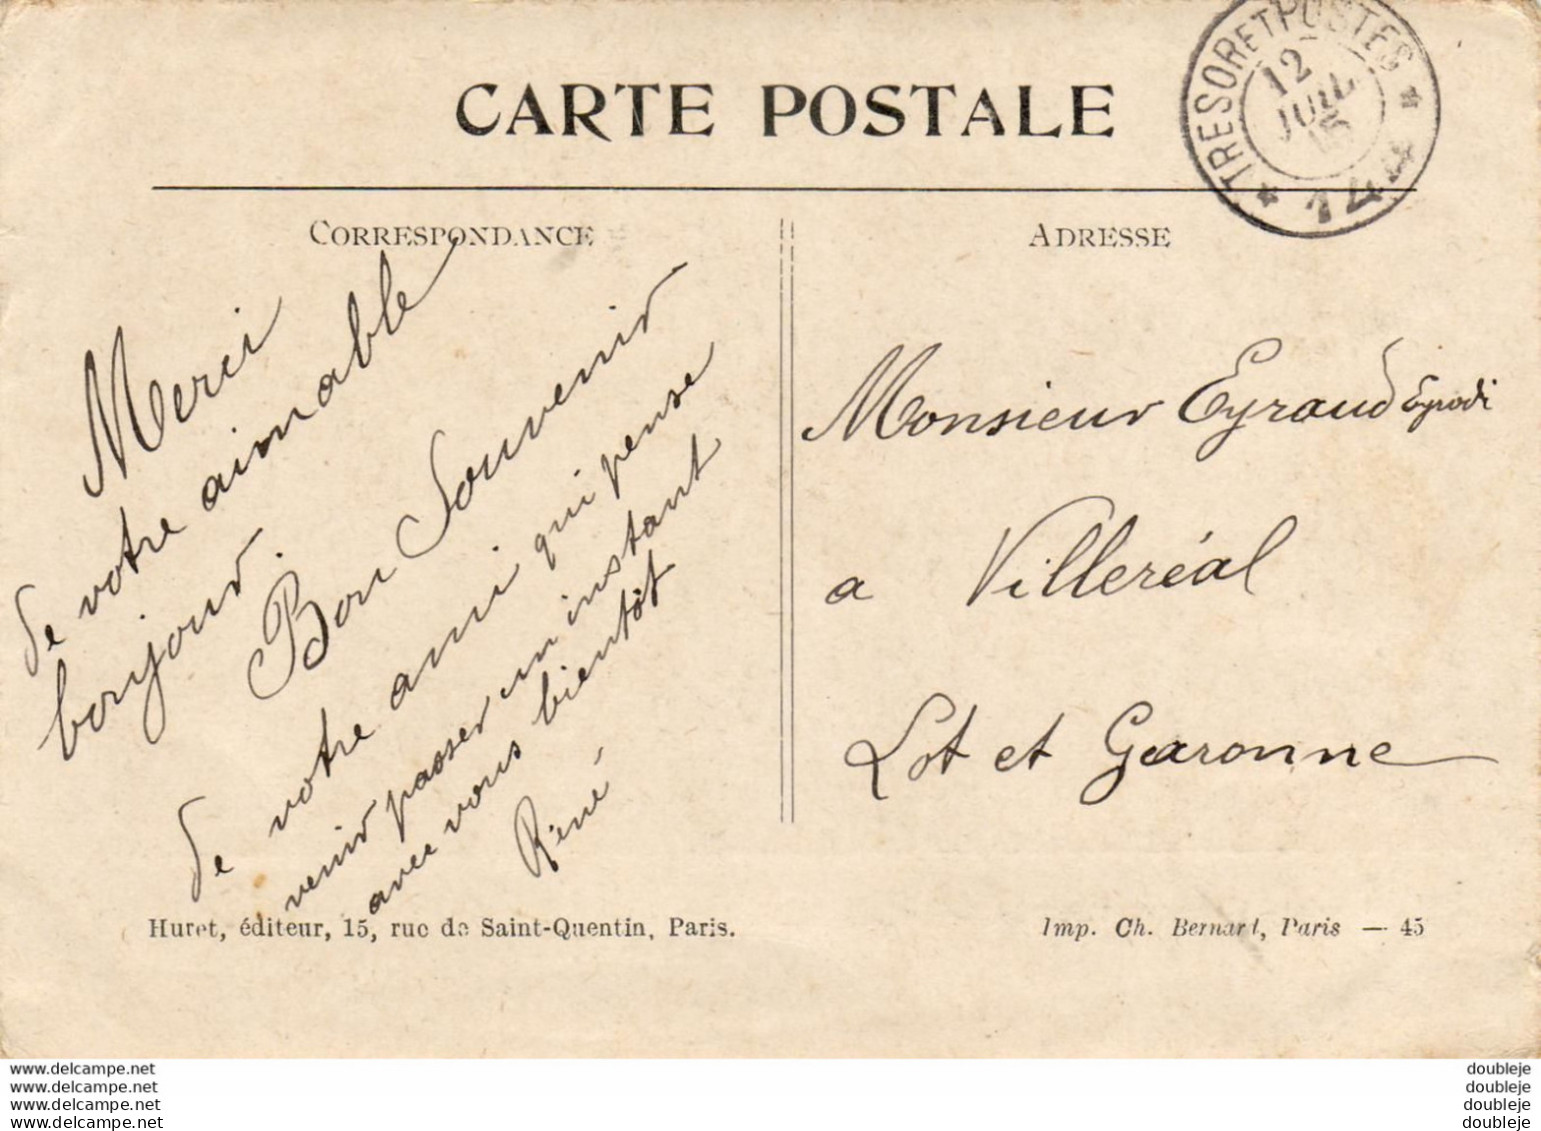 CARTE POSTALE
TRESOR ET POSTES
12
JUIL
15
* 144 *
CORRESPONDANCE
ADRESSE
Merci
de votre aimable
bonjour.
Bon Souvenir
de votre ami qui pense
venir passer un instant
avec vous bientôt
René
Monsieur Eyraud
a Villeréal
Lot et Garonne
Huret, éditeur, 15, rue de Saint-Quentin, Paris.
Imp. Ch. Bernart, Paris — 45
www.delcampe.net
www.delcampe.net
www.delcampe.net
www.delcampe.net
doubleje
doubleje
doubleje
doubleje